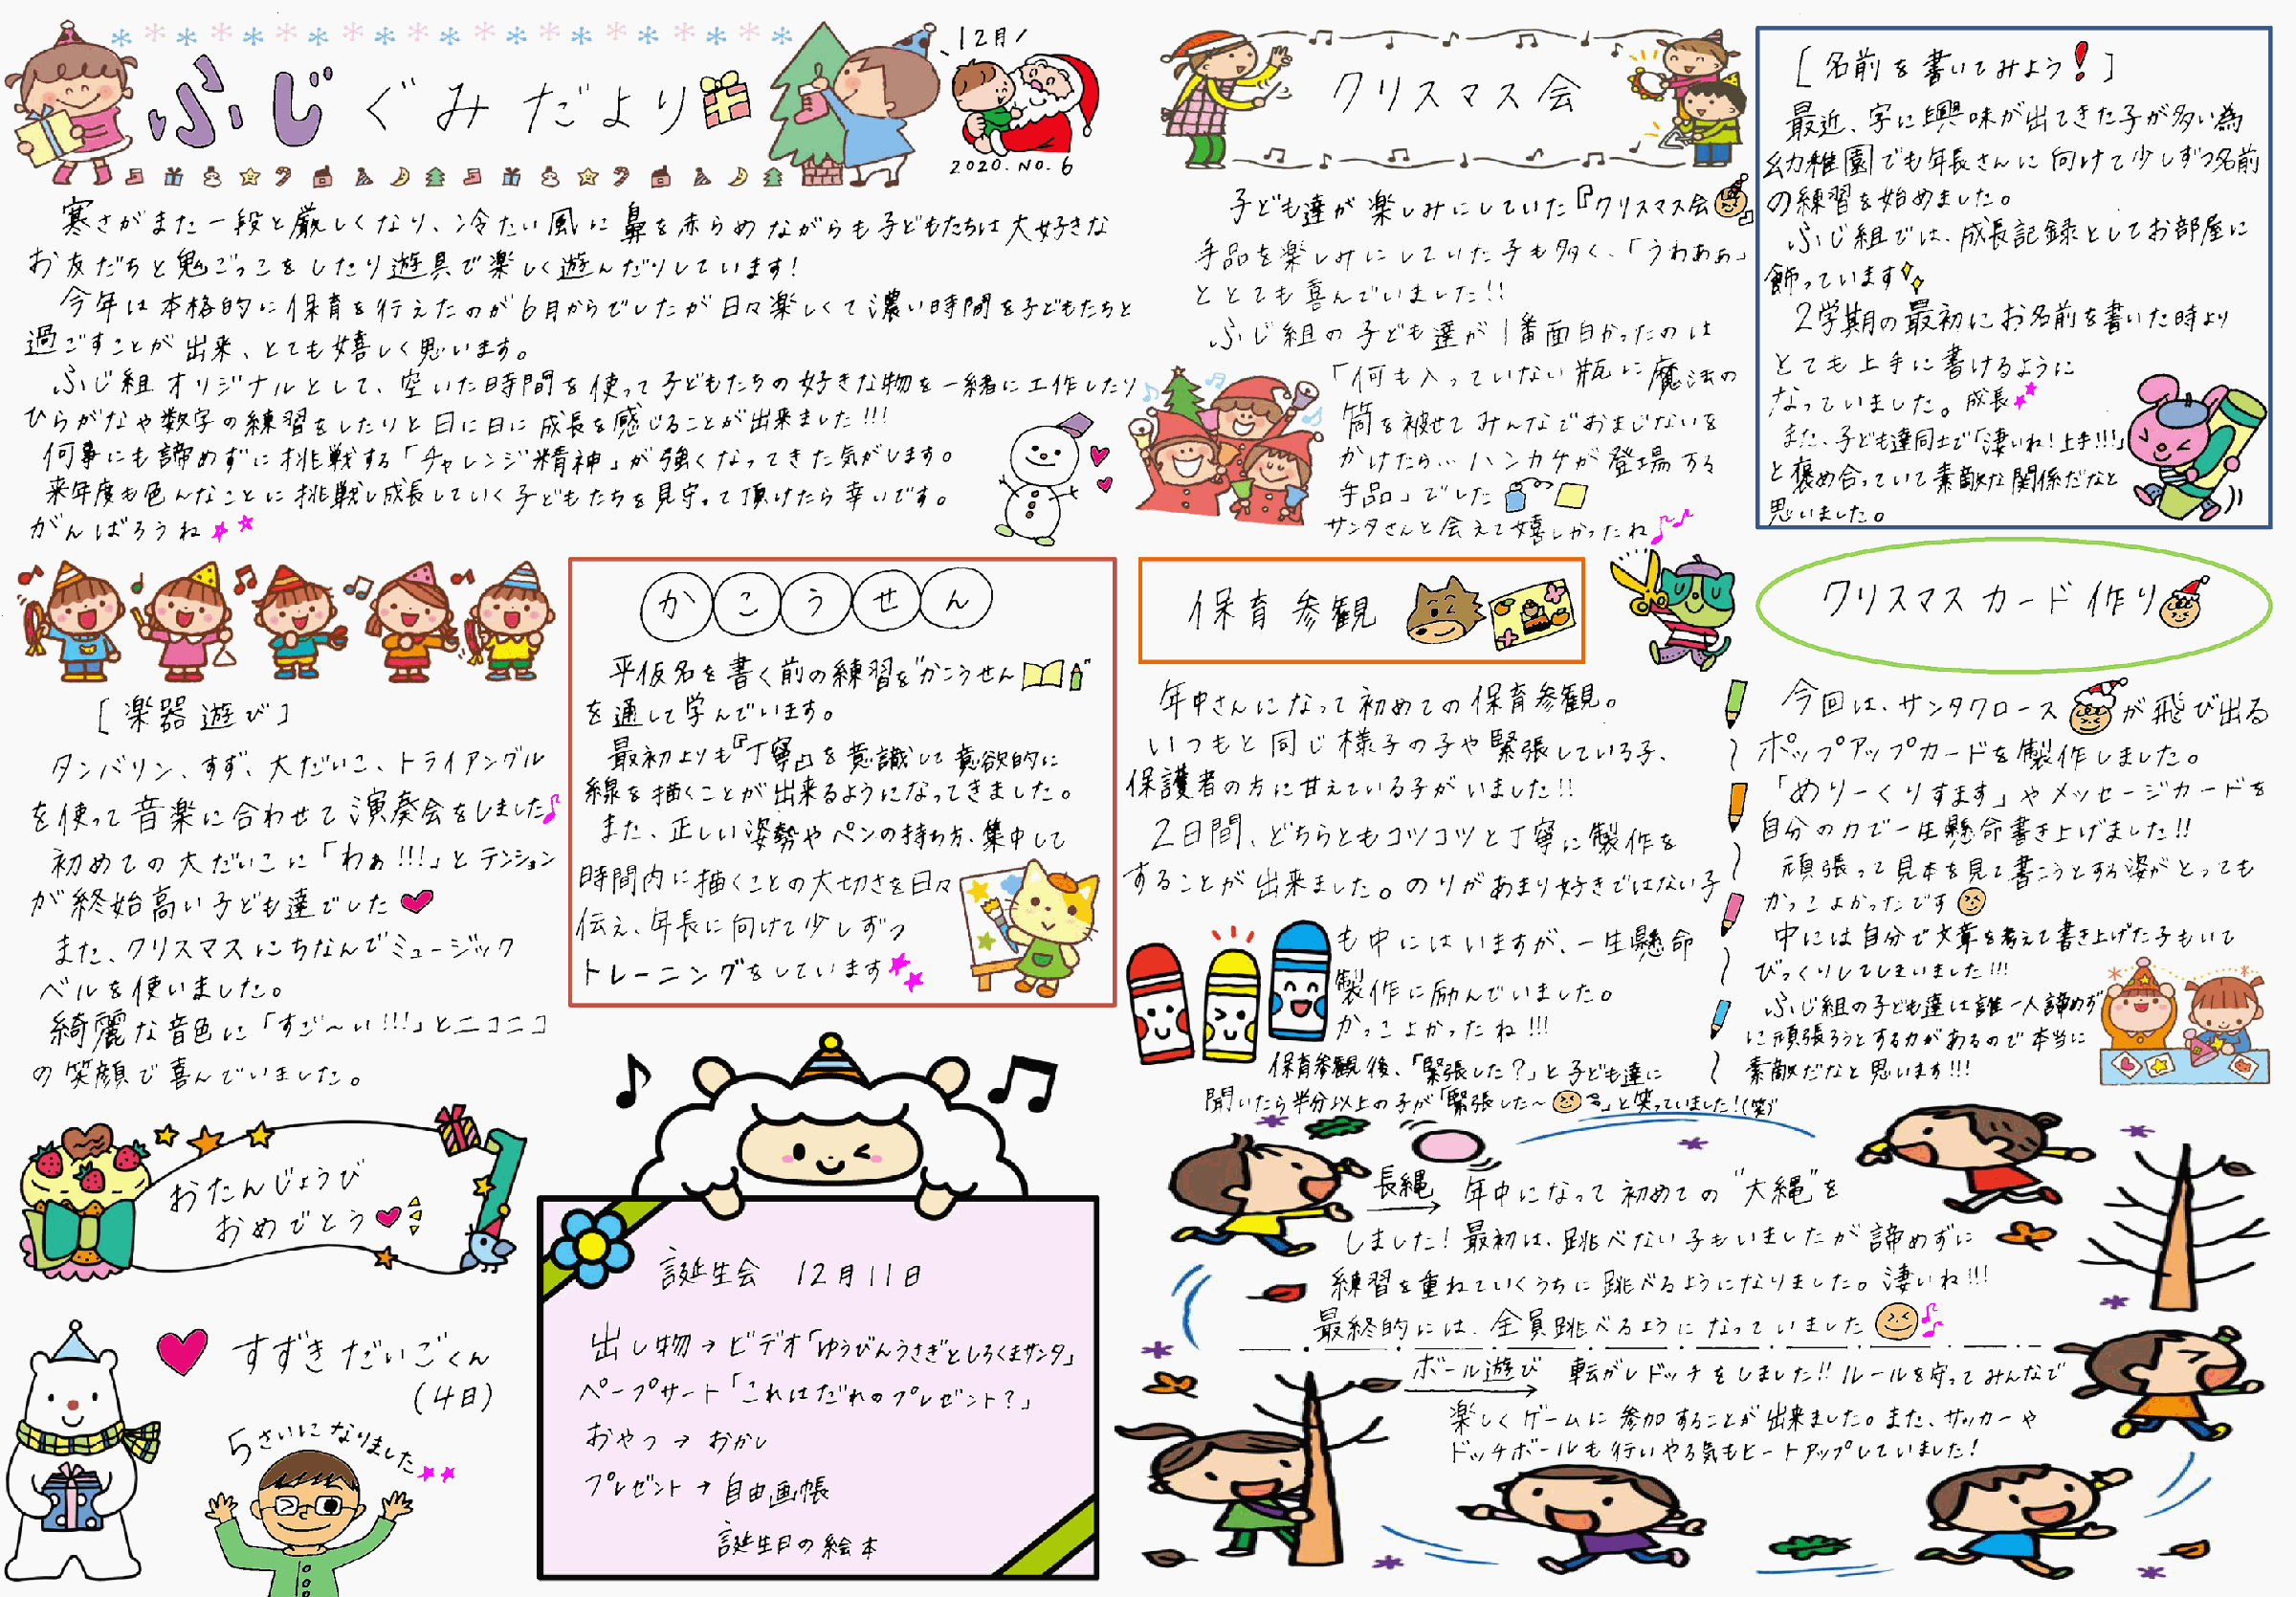 12月
ふじぐみだより
2020.NO.6
寒さがまた一段と厳しくなり、冷たい風に鼻を赤らめながらも子どもたちは大好きな
お友だちと鬼ごっこをしたり遊具で楽しく遊んだりしています!
今年は本格的に保育を行えたのが6月からでしたが日々楽しくて濃い時間を子どもたちと
過ごすことが出来、とても嬉しく思います。
ふじ組オリジナルとして、空いた時間を使って子どもたちの好きな物を一緒に工作したり
ひらがなや数字の練習をしたりと日に日に成長を感じることが出来ました!!!
何事にも諦めずに挑戦する「チャレンジ精神」が強くなってきた気がします。
来年度も色んなことに挑戦し成長していく子どもたちを見守って頂けたら幸いです。
がんばろうね
[楽器遊び]
タンバリン、すず、大だいこ、トライアングル
を使って音楽に合わせて演奏会をしました
初めての大だいこに「わぁ!!!」とテンション
が終始高い子ども達でした
また、クリスマスにちなんでミュージック
ベルを使いました。
綺麗な音色に「すご〜い!!!」とニコニコ
の笑顔で喜んでいました。
かこうせん
平仮名を書く前の練習を"かこうせん"
を通して学んでいます。
最初よりも『丁寧』を意識して意欲的に
線を描くことが出来るようになってきました。
また、正しい姿勢やペンの持ち方、集中して
時間内に描くことの大切さを日々
伝え、年長に向けて少しずつ
トレーニングをしています
おたんじょうび
おめでとう
すずきだいごくん
(4日)
5さいになりました
誕生会 12月11日
出し物→ビデオ「ゆうびんうさぎとしろくまサンタ」
ペープサート「これはだれのプレゼント?」
おやつ→おかし
プレゼント→自由画帳
誕生日の絵本
クリスマス会
子ども達が楽しみにしていた『クリスマス会』
手品を楽しみにしていた子も多く、「うわあぁ」
ととても喜んでいました!!
ふじ組の子ども達が1番面白かったのは
「何も入っていない瓶に魔法の
筒を被せてみんなでおまじないを
かけたら…ハンカチが登場する
手品」でした
サンタさんと会えて嬉しかったね
[名前を書いてみよう!]
最近、字に興味が出てきた子が多い為
幼稚園でも年長さんに向けて少しずつ名前
の練習を始めました。
ふじ組では、成長記録としてお部屋に
飾っています
2学期の最初にお名前を書いた時より
とても上手に書けるように
なっていました。成長
また、子ども達同士で「凄いね!上手!!!」
と褒め合っていて素敵な関係だなと
思いました。
保育参観
年中さんになって初めての保育参観。
いつもと同じ様子の子や緊張している子、
保護者の方に甘えている子がいました!!
2日間、どちらともコツコツと丁寧に製作を
することが出来ました。のりがあまり好きではない子
も中にはいますが、一生懸命
製作に励んでいました。
かっこよかったね!!!
保育参観後、「緊張した?」と子ども達に
聞いたら半分以上の子が「緊張した〜」と笑っていました!(笑)
クリスマスカード作り
今回は、サンタクロースが飛び出る
ポップアップカードを製作しました。
「めりーくりすます」やメッセージカードを
自分の力で一生懸命書き上げました!!
頑張って見本を見て書こうとする姿がとっても
かっこよかったです
中には自分で文章を考えて書き上げた子もいて
びっくりしてしまいました!!!
ふじ組の子ども達は誰一人諦めず
に頑張ろうとする力があるので本当に
素敵だなと思います!!!
長縄 年中になって初めての"大縄"を
しました!最初は、跳べない子もいましたが諦めずに
練習を重ねていくうちに跳べるようになりました。凄いね!!!
最終的には、全員跳べるようになっていました
ボール遊び 転がしドッチをしました!!ルールを守ってみんなで
楽しくゲームに参加することが出来ました。また、サッカーや
ドッチボールも行いやる気もヒートアップしていました!